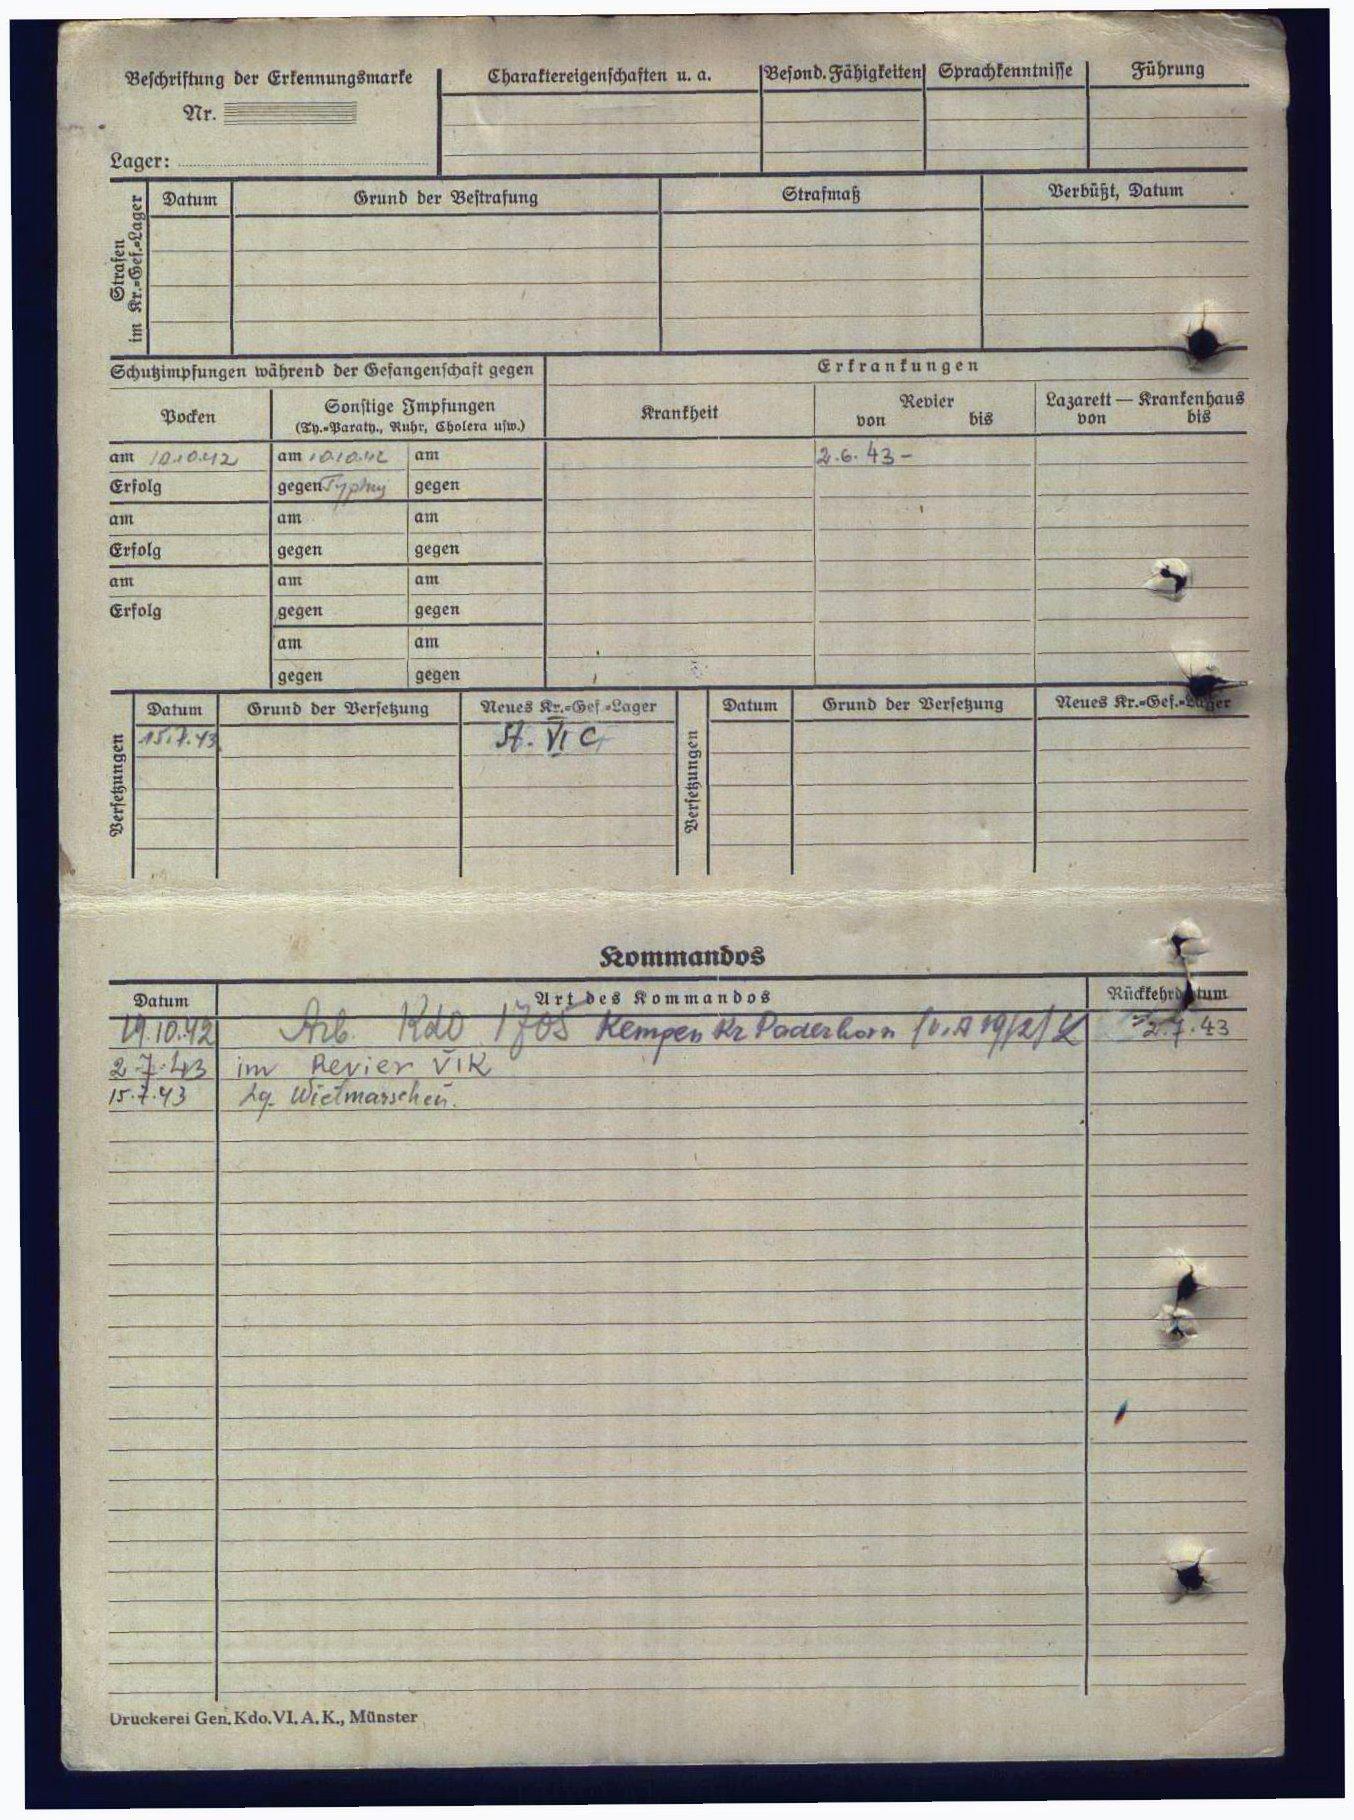 Beschriftung der Erkennungsmarke
Nr.
Lager:
Charaktereigenschaften u. a.
Besond. Fähigkeiten
Sprachkenntnisse
Führung
Strafen
im Kr.=Gef.=Lager
Datum
Grund der Bestrafung
Strafmaß
Verbüßt, Datum
Schutzimpfungen während der Gefangenschaft gegen
Erkrankungen
Pocken
Sonstige Impfungen
(Ty.=Paraty., Ruhr, Cholera usw.)
Krankheit
Revier
von bis
Lazarett — Krankenhaus
von bis
am 10.10.42 am 10.10.42 am 2.6.43 –
Erfolg gegen gegen
am am am
Erfolg gegen gegen
am am am
Erfolg gegen gegen
am am
gegen gegen
Versetzungen
Datum Grund der Versetzung Neues Kr.=Gef.=Lager
15.7.43 St. VI C
Versetzungen
Datum Grund der Versetzung Neues Kr.=Gef.=Lager
Kommandos
Datum Art des Kommandos Rückkehrdatum
19.10.42 Arb. Kdo 1705 Kempen Kr Paderborn 2.7.43
2.7.43 im Revier VI K
15.7.43 Lg. Wietmarschen.
Druckerei Gen. Kdo. VI. A. K., Münster